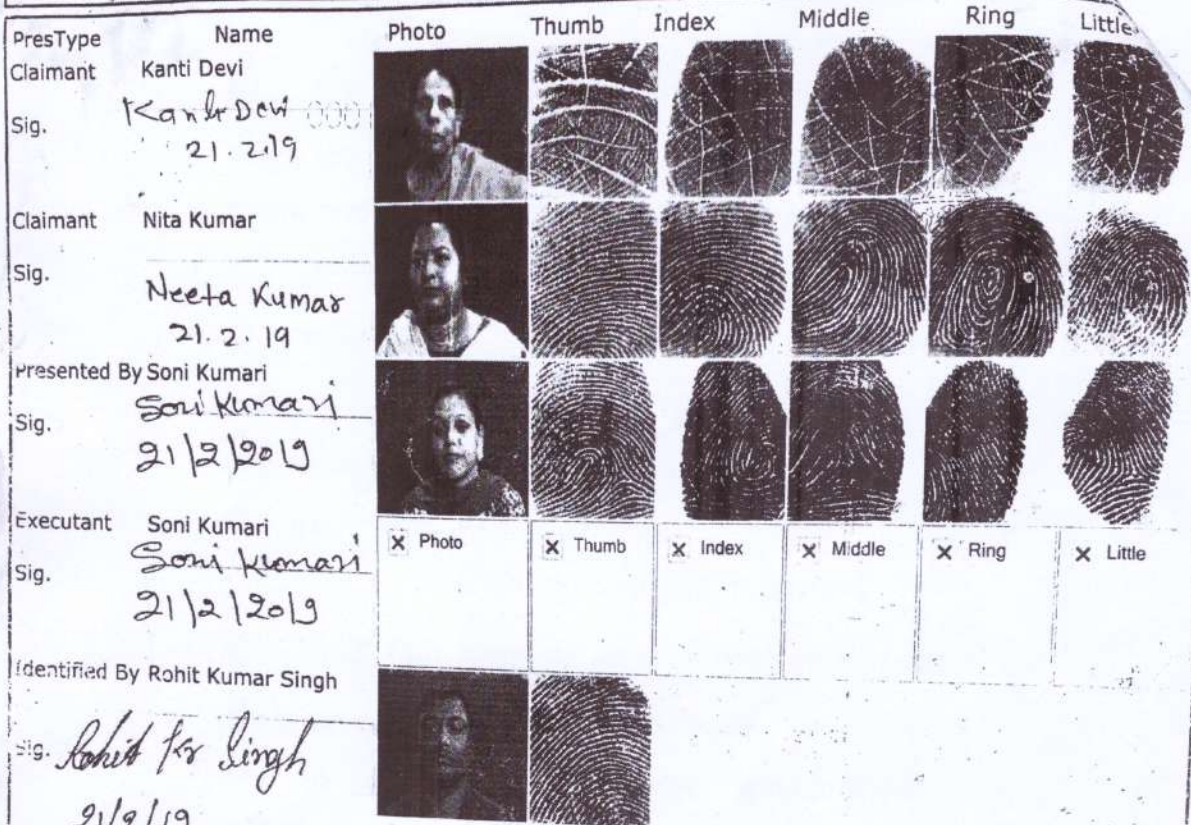 PresType Name Photo Thumb Index Middle Ring Little
Claimant Kanti Devi
Sig. Kanti Devi
21.2.19
Claimant Nita Kumar
Sig. Neeta Kumar
21.2.19
Presented By Soni Kumari
Sig. Soni Kumari
21/2/2019
Executant Soni Kumari
Sig. Soni Kumari
21/2/2019
× Photo × Thumb × Index × Middle × Ring × Little
Identified By Rohit Kumar Singh
Sig. Rohit Kr Singh
21/2/19